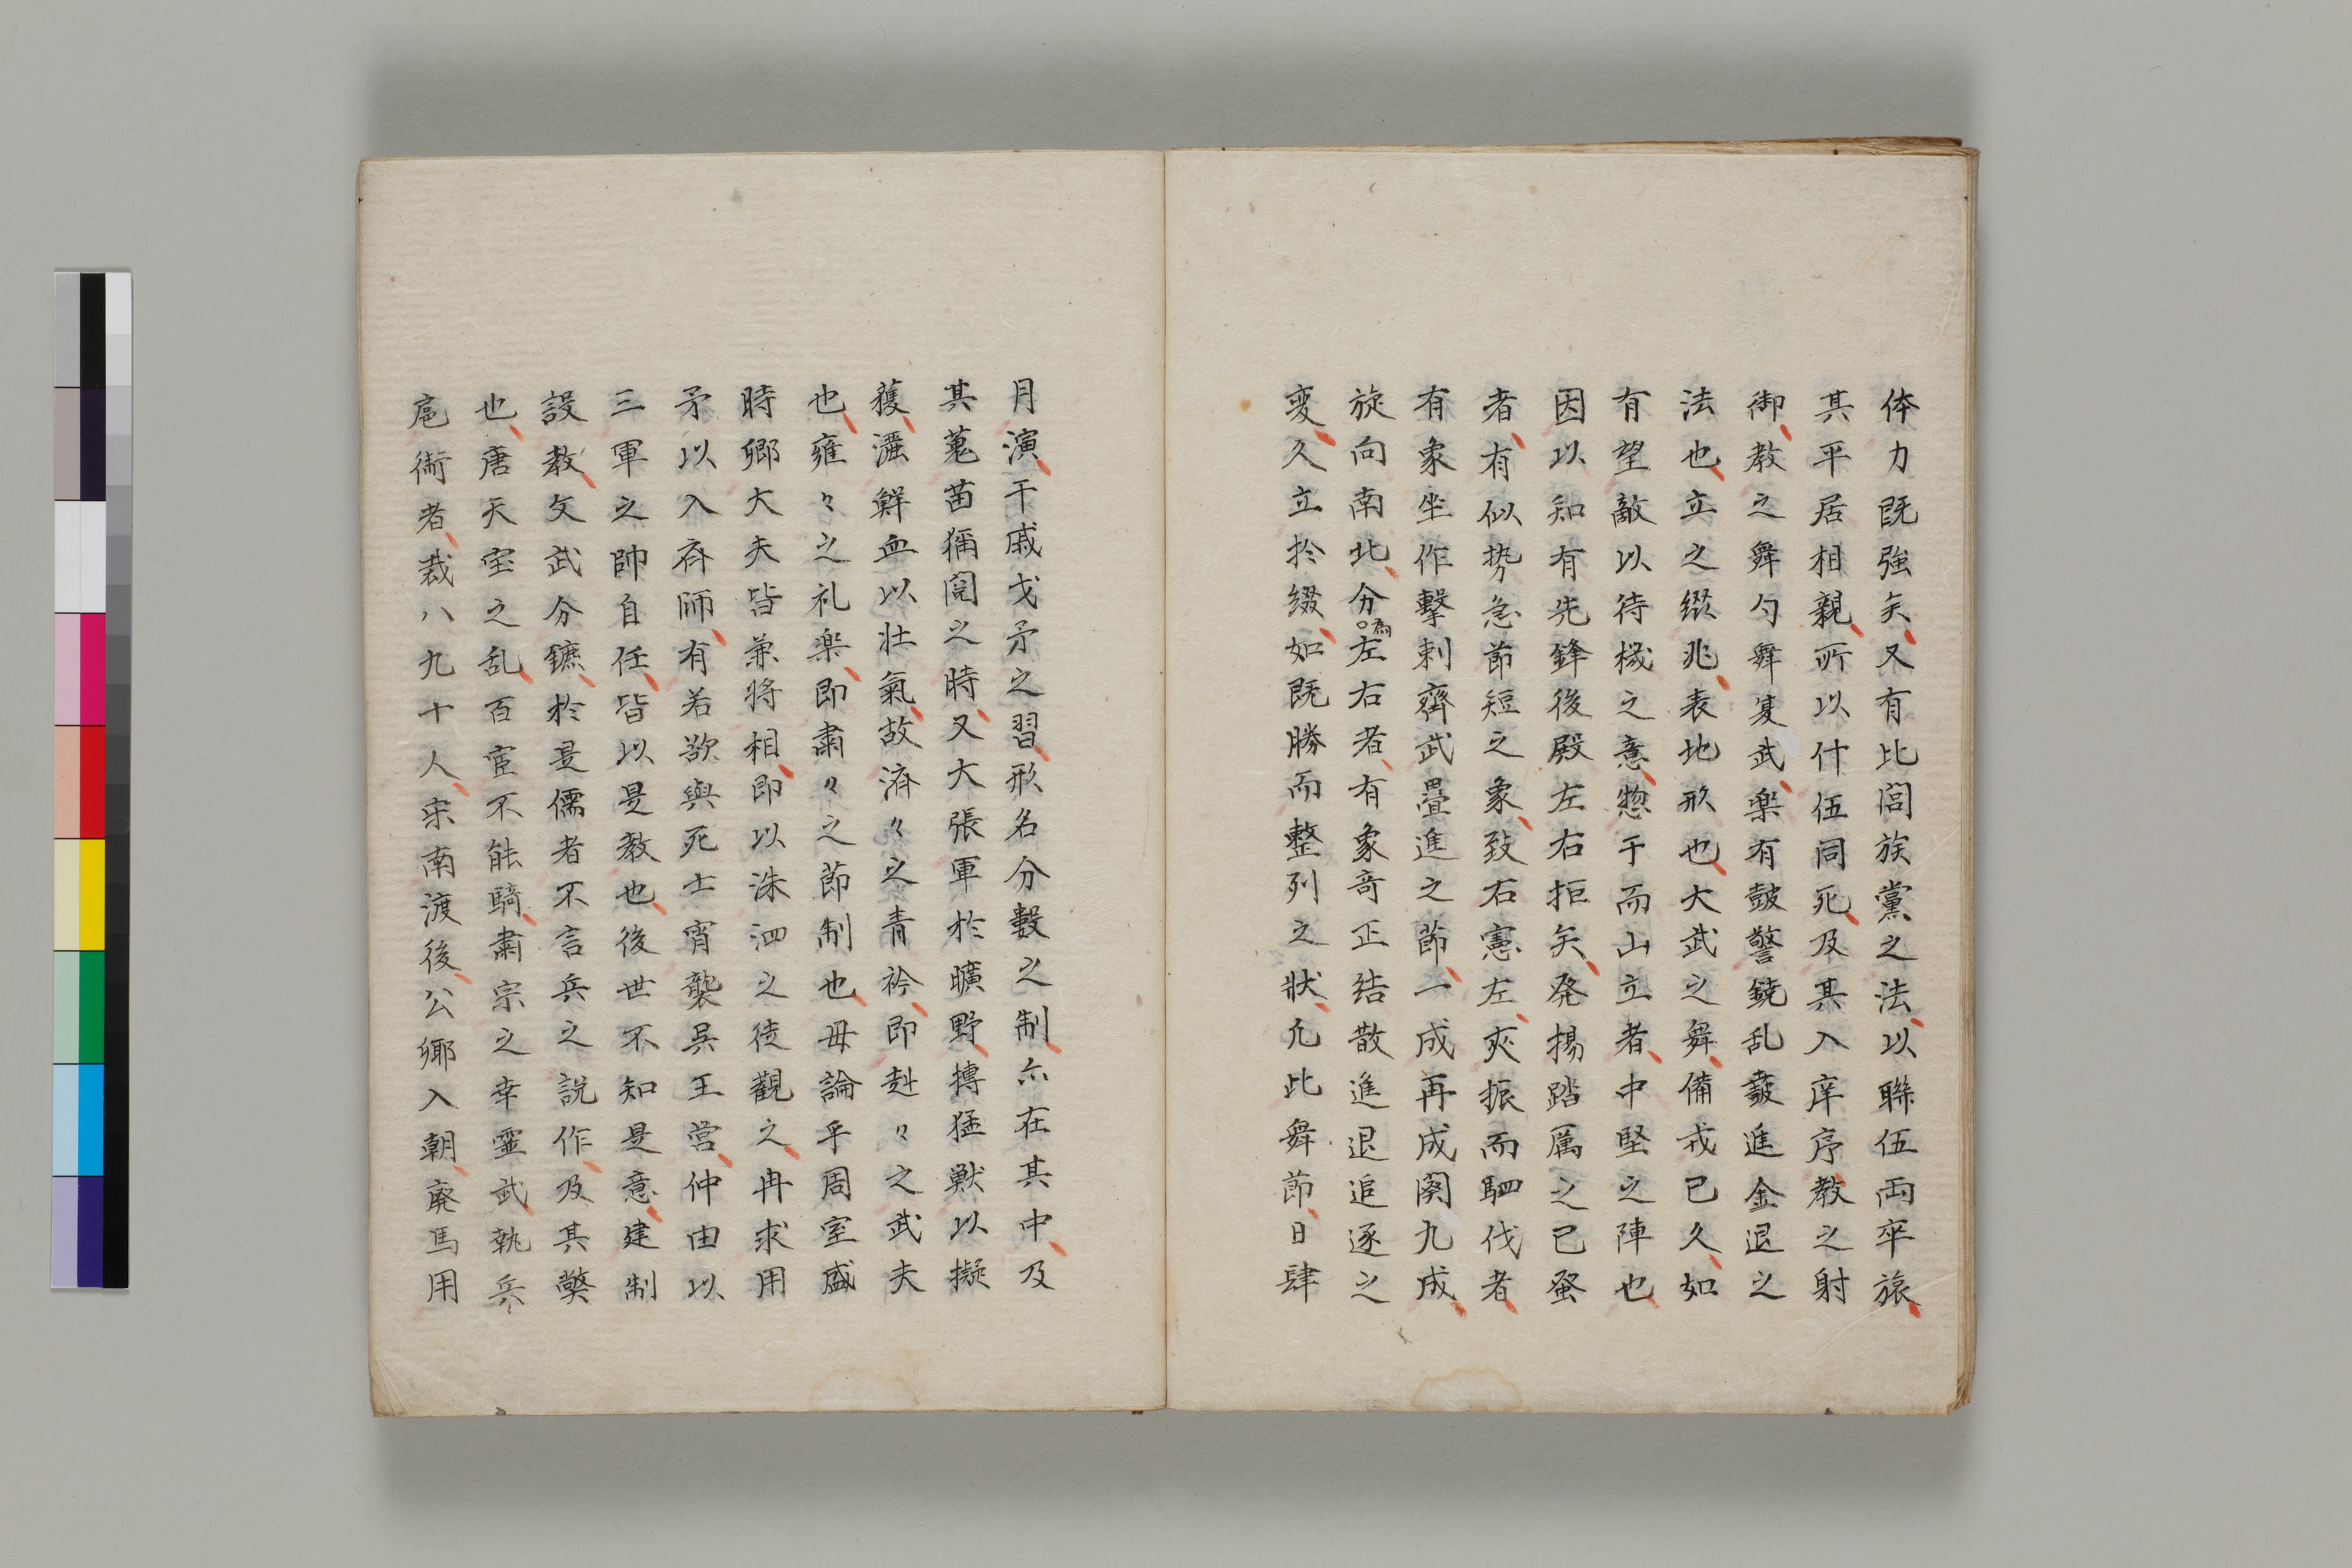 体力既強矣又有比閭族黨之法以聯伍両卒旅
其平居相親所以什伍同死及其入庠序教之射
御教之舞勺舞夏武楽有鼓警鐃乱鼓進金退之
法也立之綴兆表地形也大武之舞備戒已久如
有望敵以待機之意惣干而山立者中堅之陣也
因以知有先鋒後殿左右拒矣発揚踏厲之已蚤
者有似勢急節短之象致右憲左夾振而駟伐者
有象坐作撃刺齊武疊進之節一成再成闋九成
旋向南北分為左右者有象竒正结散進退追逐之
変久立於綴如既勝而整列之狀凢此舞節日肆
月演干戚戈矛之習形名分數之制亦在其中及
其蒐苗獮閱之時又大張軍於曠野搏猛獣以擬
獲灑鮮血以壮氣故済々之青衿即赳々之武夫
也雍々之礼楽即肅々之節制也毋論乎周室盛
時郷大夫皆兼将相即以洙泗之徒觀之冉求用
矛以入斉師有若欲與死士宵襲吴王営仲由以
三軍之帥自任皆以是教也後世不知是意建制
設教文武分鑣於是儒者不言兵之說作及其弊
也唐天宝之乱百宦不能騎肅宗之幸霊武執兵
扈衛者裁八九十人宋南渡後公郷入朝廃馬用